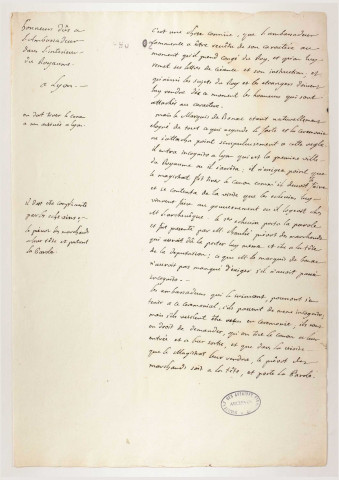 honneurs dûs a
l'Ambassadeur
dans l'interieur
du Royaume
a Lyon
on doit tirer le canon
a son arrivée a lyon
il doit etre complimenté
par les echevins,
le prevost des marchands
a leur tête et portant
la Parole
C'est une chose connüe, que l'ambassadeur
commence a être revêtu de son caractere au
moment qu'il prend congé du Roy, et qu'on luy
remet ses lettres de creance et son instruction, et
qu'ainsi les sujets du Roy et les etrangers doivent
luy rendre dès ce moment les honneurs qui sont
attachés au caractere.
mais le Marquis de Bonac étant naturellement
eloigné de tout ce qui regarde le faste et la ceremonie
ne s'attacha point scrupuleusement a cette regle.
il entra incognito a Lyon qui est la premiere ville
du Royaume ou il s'arrêta, il n'exigea point que
le magistrat fit tirer le canon comme il devoit faire
et se contenta de la visite que les echevins luy
vinrent faire au gouvernement ou il logeoit chez
M. l'archevêque. le 1er echevin porta la parole
et fit excuse par M. prévost des marchands
qui auroit dû la porter luy même et etre a la tête
de la deputation; ce que M. le marquis de Bonac
n'auroit pas manqué d'exiger s'il n'avoit passé
incognito.
les ambassadeurs qui le suivront, pourront s'en
tenir a ce ceremonial, s'ils passent de même incognito;
mais s'ils veulent être reçus en ceremonie, ils sont
en droit de demander, qu'on tire le canon a leur
entrée et a leur sortie, et que dans la visite
que le Magistrat leur rendra, le prévôt des
marchands soit a la tête, et porte la Parole.